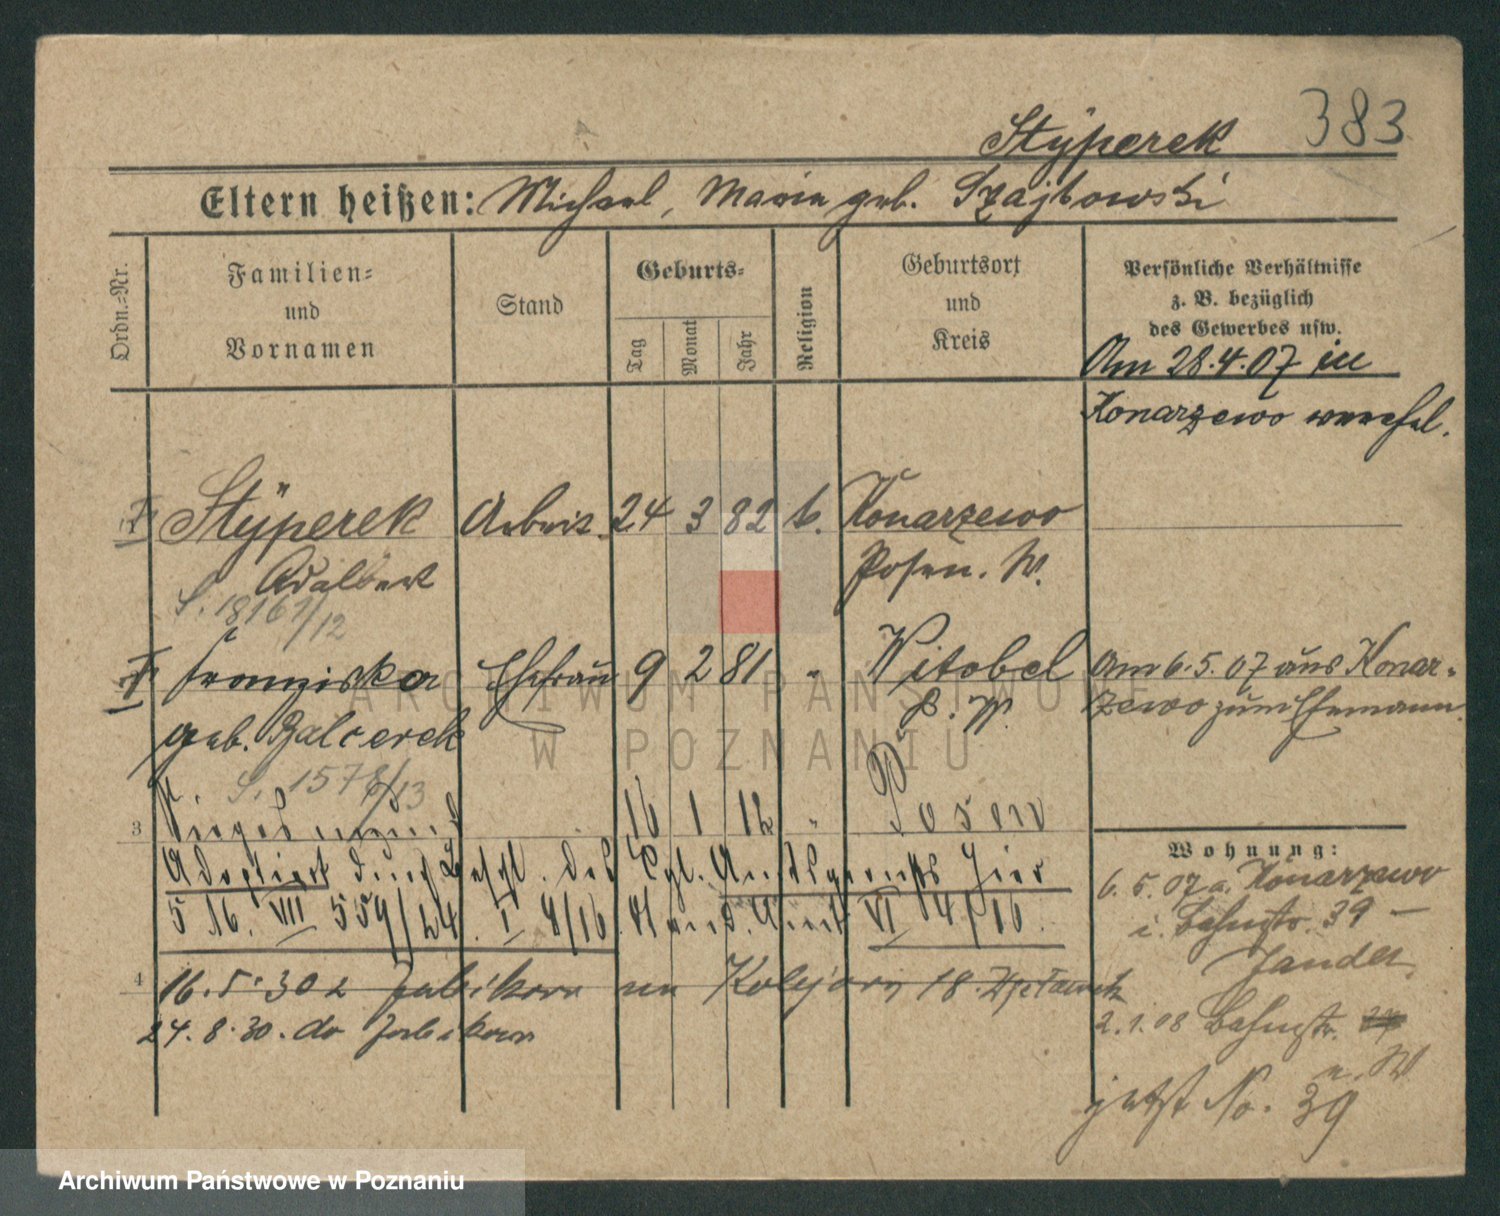 383
Stÿperek
Eltern heißen: Michael, Maria geb. Szajkowski
Ordn.=Nr.
Familien=
und
Vornamen
Stand
Geburts=
Tag
Monat
Jahr
Religion
Geburtsort
und
Kreis
Persönliche Verhältnisse
z. B. bezüglich
des Gewerbes usw.
Am 28.4.07 in
Konarzewo verehel.
Stÿperek Arbeit. 24 3 82 k. Konarzewo
Adalbert Posen. W.
S. 1816
/12
Franziska Ehefrau 9 2 81 " Witobel
geb. Balcerek P. W.
Am 6.5.07 aus Konar-
zewo zum Ehemann.
S. 1578/13
3 16 1 12 " Posen
Adoptiert durch des Kgl. Amtsgerichts hier
5 16. VII 559/24. I 8/16. VI 14/16.
4 16.5.30 z Junikowa na 18.
24.8.30. do Junikowa
Wohnung:
6.5.07 a. Konarzewo
i. Bahnstr. 39 –
2.1.08 Bahnstr.
jetzt No. 39
ARCHIWUM PAŃSTWOWE
W POZNANIU
Archiwum Państwowe w Poznaniu